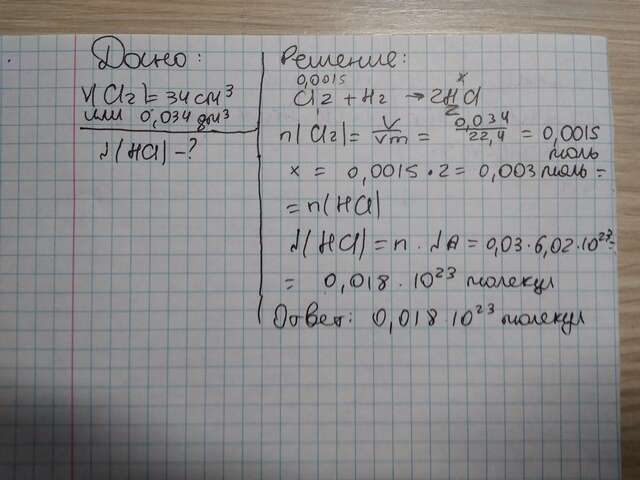 Дано:
V(Cl2)=34 см³
или 0,034 дм³
N(HCl)-?
Решение:
0,0015 x
Cl2 + H2 → 2HCl
2
n(Cl2)= V/Vm = 0,034/22,4 = 0,0015
моль
x = 0,0015 · 2 = 0,003 моль =
= n(HCl)
N(HCl) = n · NA = 0,03 · 6,02 · 10²³=
= 0,018 · 10²³ молекул
Ответ: 0,018·10²³ молекул